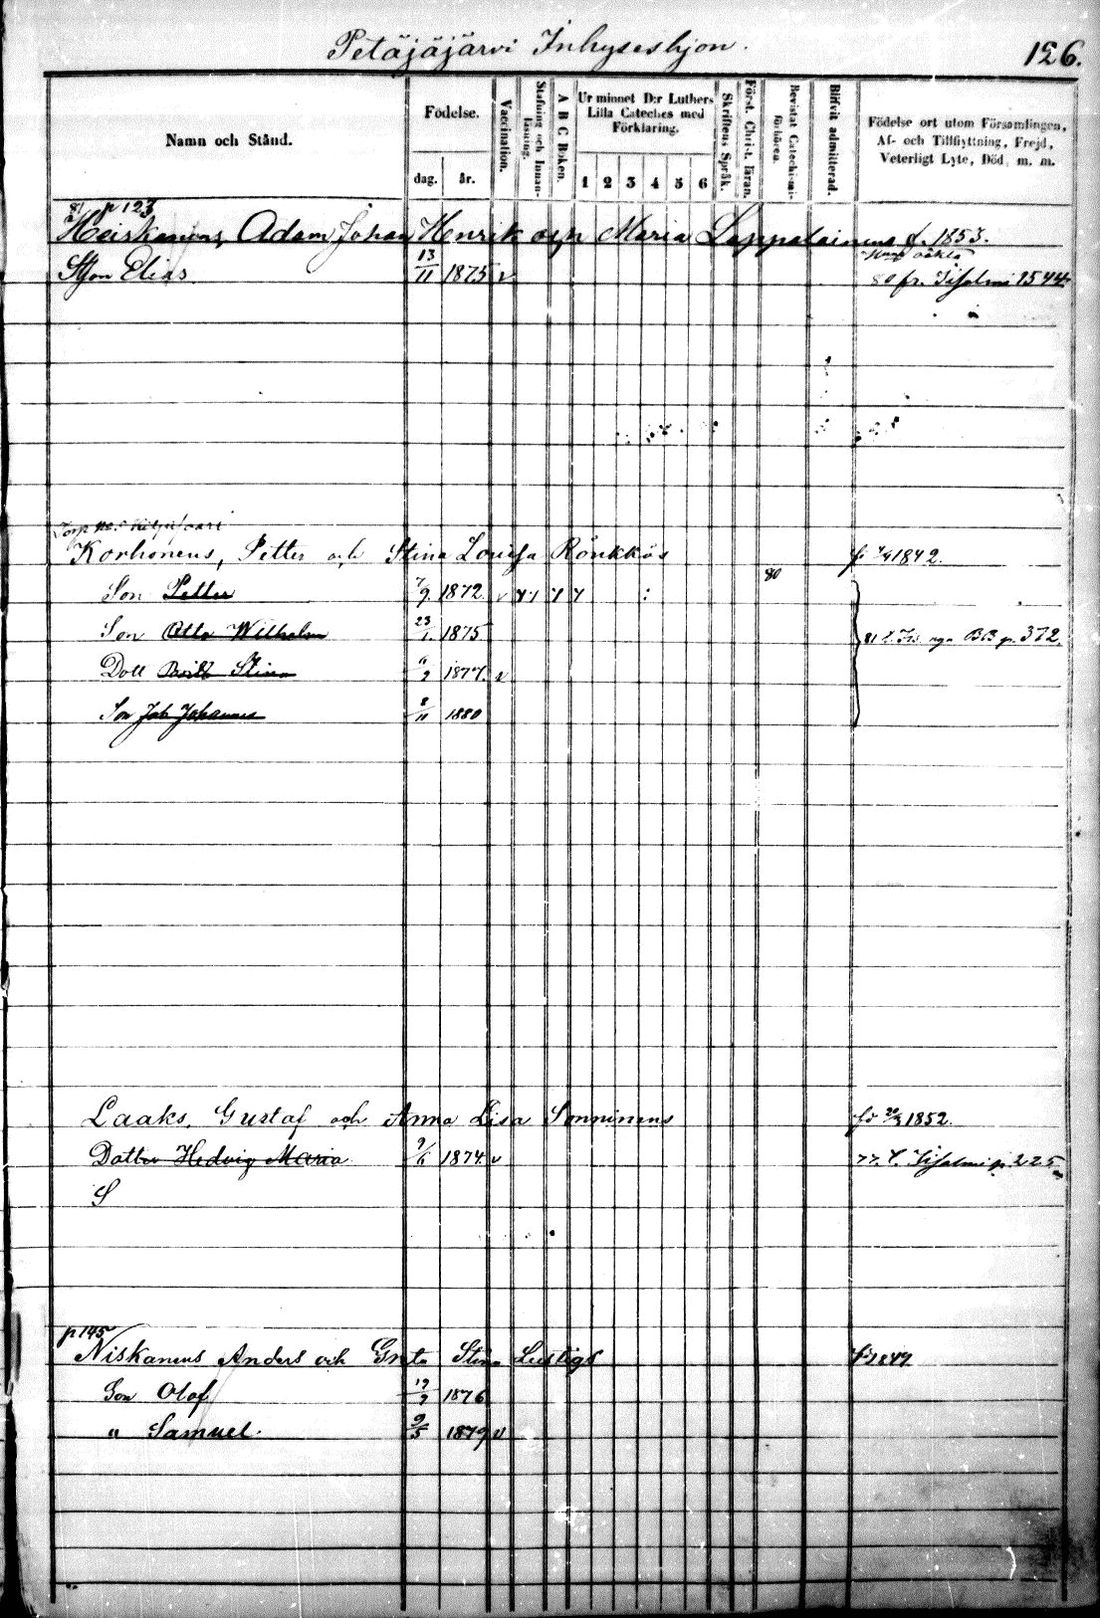 Petäjäjärvi Inhyseshjon.
126.
Namn och Stånd.
Födelse.
dag.
år.
Vaccination.
Stafning och Innan-
läsning.
A B C Boken.
Ur minnet D:r Luthers
Lilla Cateches med
Förklaring.
1 2 3 4 5 6
Skriftens Språk.
Först. Christ. läran.
Bevistat Catechismi-
förhören.
Blifvit admitterad.
Födelse ort utom Församlingen,
Af- och Tillflyttning, Frejd,
Veterligt Lyte, Död, m. m.
81 p 123
Heiskanens, Adam Johan Henrik och Maria Lappalainens f. 1853.
Elias 13/11 1875 v 80 fr. Iisalmi 1544
Korhonens, Petter och Stina Lovisa Rönkkös f. 1842.
Son Petter 7/9 1872 v 80
Son Otto Wilhelm 23/1 1875 81 p. 372.
Dott Brita Stina 1877 v
Son Joh Johannes 8/11 1880
Laaks, Gustaf och Anna Lisa Sonninens fö 1852.
Dotter Hedvig Maria 9/6 1874 v 77. Iisalmi p. 225
S
p 145
Niskanens Anders och Greta Stina Lustigs f. 1847
Son Olof 19/9 1876
" Samuel. 9/5 1879 v